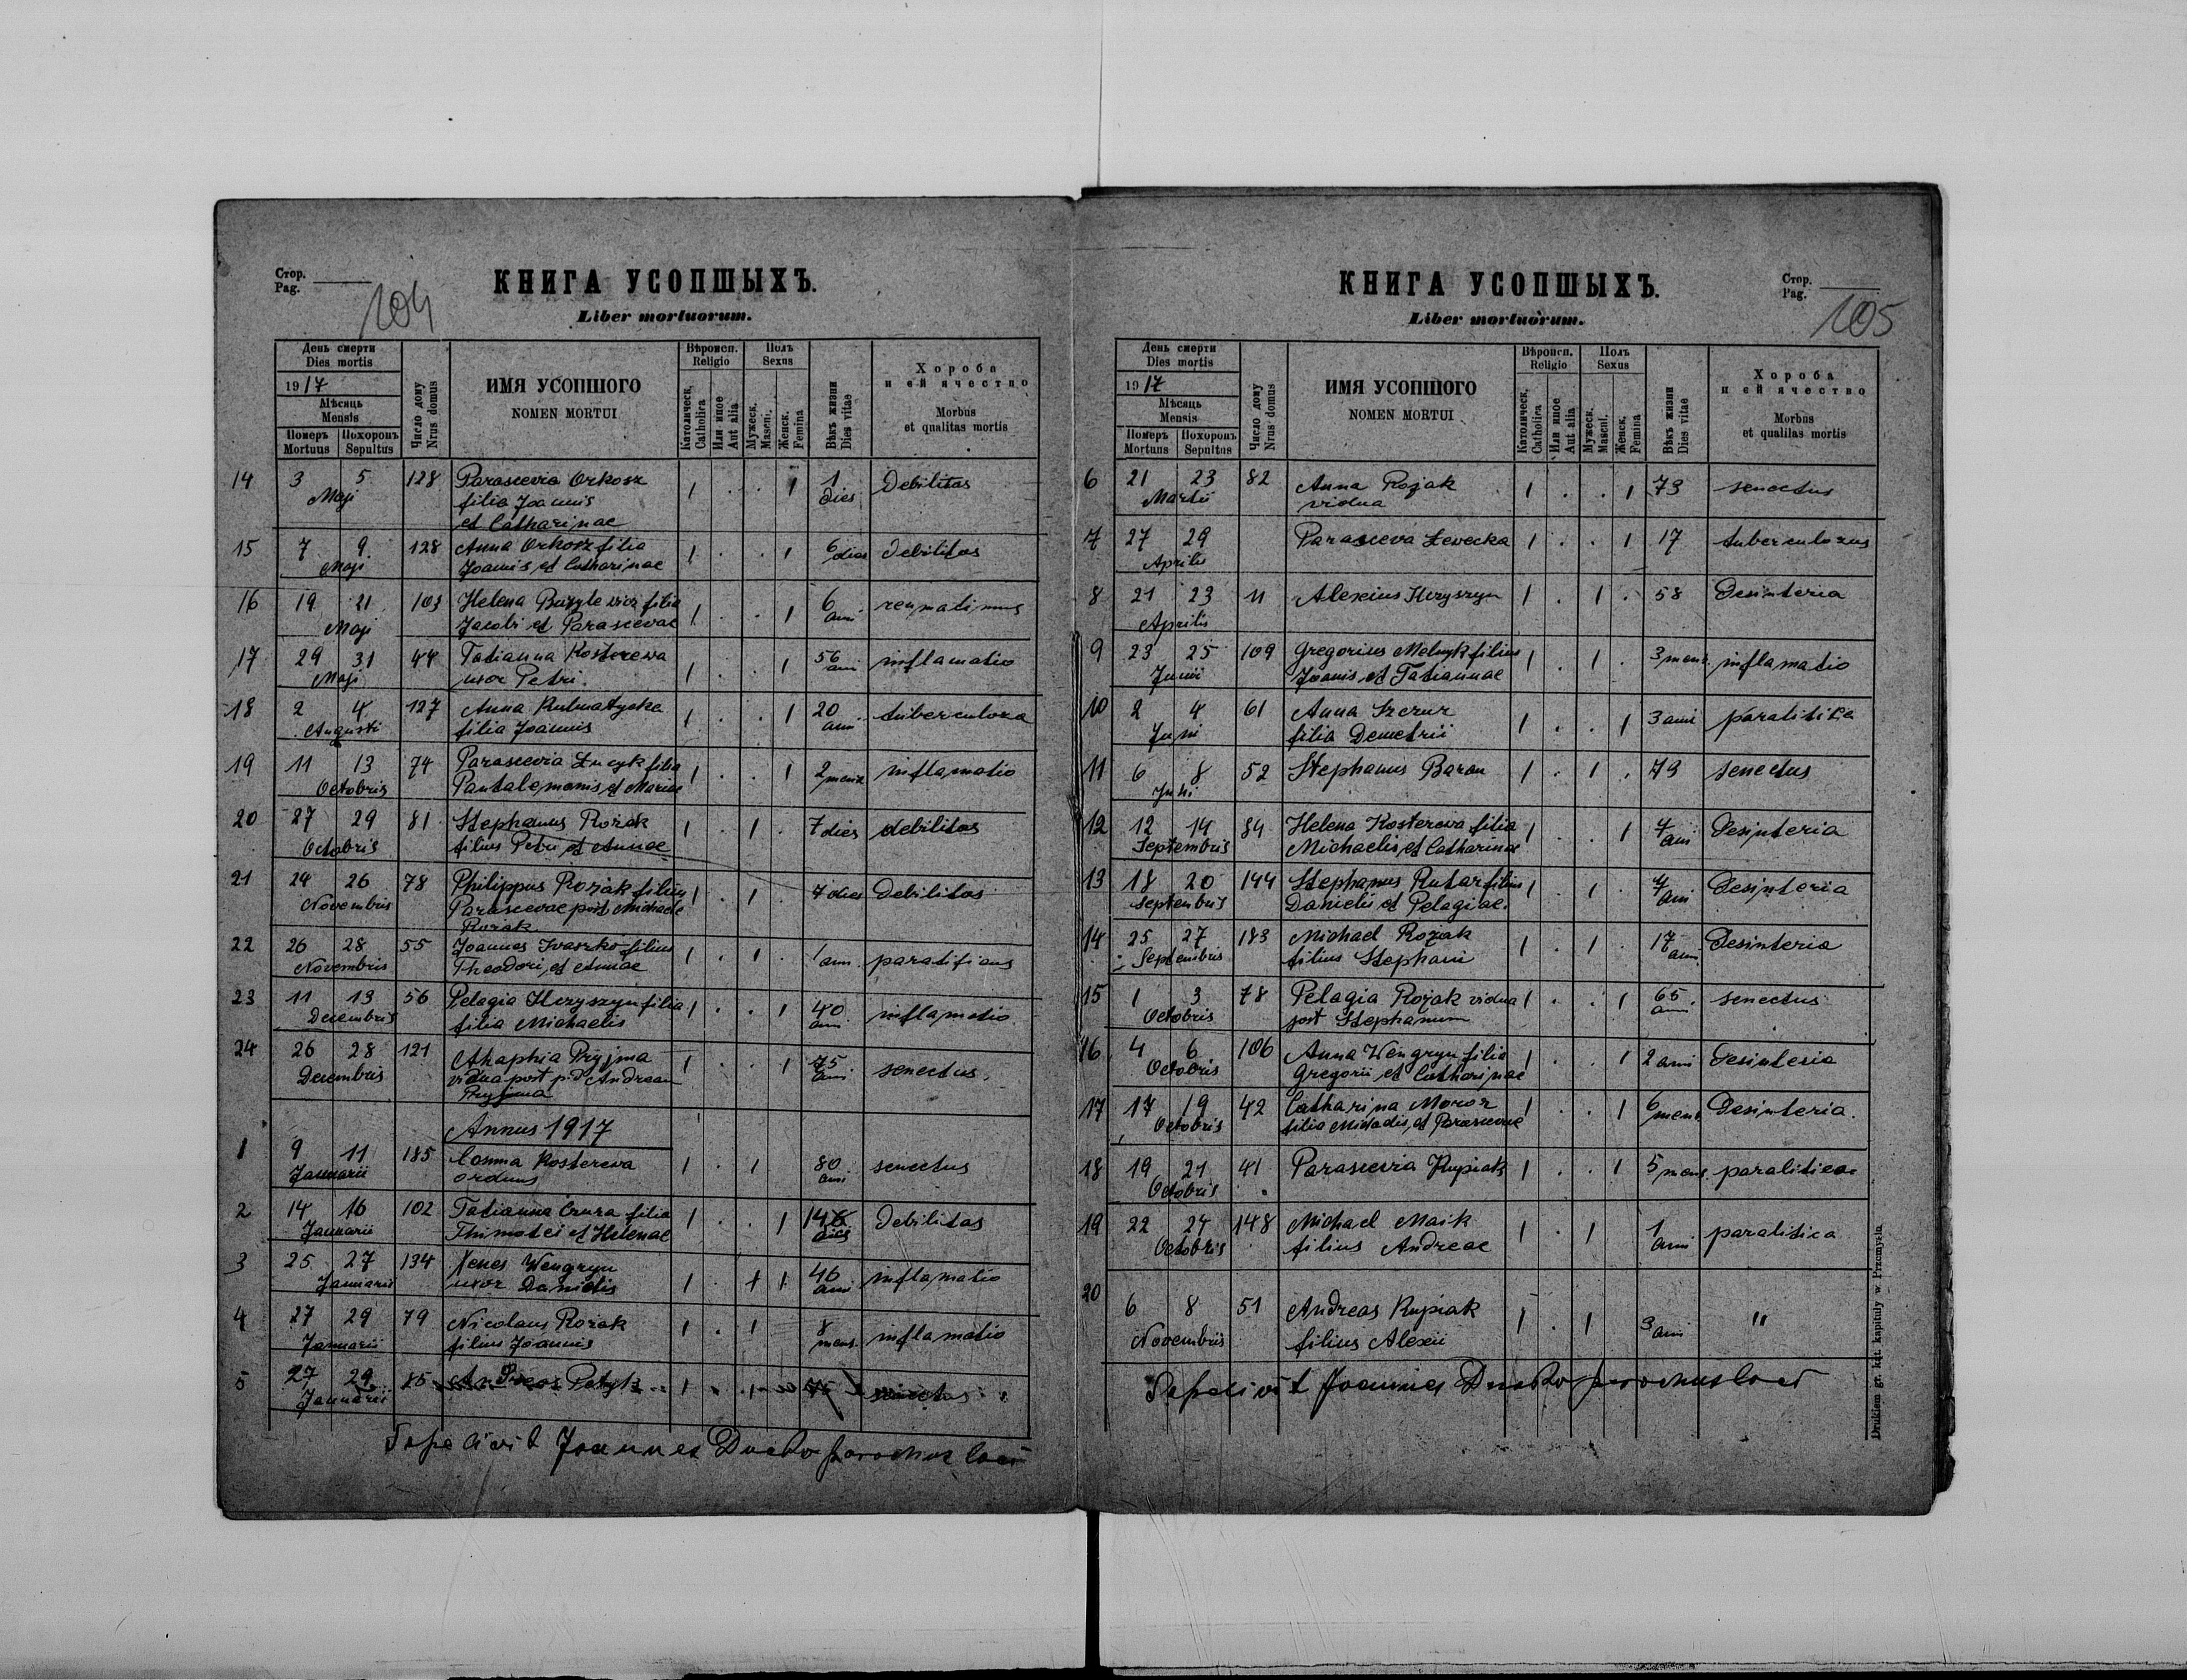 Стор.
Pag.
104
КНИГА УСОПШЫХЪ.
Liber mortuorum.
День смерти
Dies mortis
1917
Мѣсяць
Mensis
Померъ Похоронъ
Mortuus Sepultus
Число дому
Nrus domus
ИМЯ УСОПШОГО
NOMEN MORTUI
Вѣроисп.
Religio
Католическ.
Catholica
Или иное
Aut alia
Полъ
Sexus
Мужеск.
Mascul.
Женск.
Femina
Вѣкъ жизни
Dies vitae
Хороба
и ей ячество
Morbus
et qualitas mortis
14 3 5 128 Parascevia Orkosz 1 . . 1 1 Debilitas
Maji filia Joannis dies
et Catharinae
15 7 9 128 Anna Orkosz filia 1 . . 1 6 dies debilitas
Maji Joannis et Catharinae
16 19 21 103 Helena filia 1 . . 1 6 reumatismus
Maji Jacobi et Parascevae anni
17 29 31 44 Tatianna Kostereva 1 . . 1 56 inflamatio
Maji uxor Petri. anni
18 2 4 127 Anna 1 . . 1 20 tuberculoza
Augusti filia Joannis anni
19 11 13 74 Parascevia Łucyk filia 1 . . 1 2 mens inflamatio
Octobris Pantalemonis et Mariae
20 27 29 81 Stephanus Rożak 1 . 1 . 7 dies debilitas
Octobris filius Petri et Annae
21 24 26 78 Philippus Rożak filius 1 . 1 . 7 dies Debilitas
Novembris Parascevae post Michaele
Rożak
22 26 28 55 Joannes Iwaszko filius 1 . 1 . 1 ann. paratifians
Novembris Theodori et Annae
23 11 13 56 Pelagia Hryszyn filia 1 . . 1 40 inflamatio
Decembris filia Michaelis anni
24 26 28 121 Ahaphia Pryjma 1 . . 1 75 senectus.
Decembris vidua post p.d. Andream anni
Pryjma
Annus 1917
1 9 11 185 Cosma Kostereva 1 . 1 80 senectus
Januarii anni
2 14 16 102 Tatianna filia 1 . . 1 14 Debilitas
Januarii Thimotei et Helenae dies
3 25 27 134 Xenes Wengryn 1 . 1 1 46 inflamatio
Januarii uxor Danielis anni
4 27 29 79 Nicolaus Rożak 1 . 1 8 inflamatio
Januarii filius Joannis mens.
5 27 29 85 Andreas 1 . 1 75 senectus
Januarii
Sepelivit Joannes Ducko parochus loci
КНИГА УСОПШЫХЪ.
Liber mortuorum.
Стор.
Pag.
105
День смерти
Dies mortis
1917
Мѣсяць
Mensis
Померъ Похоронъ
Mortuus Sepultus
Число дому
Nrus domus
ИМЯ УСОПШОГО
NOMEN MORTUI
Вѣроисп.
Religio
Католическ.
Catholica
Или иное
Aut alia
Полъ
Sexus
Мужеск.
Mascul.
Женск.
Femina
Вѣкъ жизни
Dies vitae
Хороба
и ей ячество
Morbus
et qualitas mortis
6 21 23 82 Anna Rożak 1 . . 1 73 senectus
Martii vidua
7 27 29 Parasceva Łevecka 1 . . 1 17 tuberculozus
Aprilis
8 21 23 11 Alexius Hryszyn 1 . 1 . 58 Desinteria
Aprilis
9 23 25 109 Gregorius Melnyk filius 1 . 1 . 3 mens. inflamatio
Junii Joanis et Tatiannae
10 2 4 61 Anna Szczur 1 . . 1 3 anni paralitica
Juni filia Demetrii
11 6 8 52 Stephanus Baran 1 . 1 . 73 senectus
12 12 14 84 Helena Kostereva filia 1 . . 1 4 Desinteria
Septembris Michaelis et Catharinae anni
13 18 20 144 Stephanus Rutar filius 1 . 1 . 4 Desinteria
Septembris Danielis et Pelagiae. anni
14 25 27 183 Michael Rożak 1 . 1 . 17 Desinteria
Septembris filius Stephani anni
15 1 3 78 Pelagia Rożak vidua 1 . . 1 65 senectus
Octobris post Stephanum anni
16 4 6 106 Anna Wengryn filia 1 . . 1 2 anni Desinteria
Octobris Gregorii et Catharinae
17 17 19 42 Catharina Moroz 1 . . 1 6 Desinteria.
Octobris filia Michaelis et Parascevae mens.
18 19 21 41 Parascevia Kupiak 1 . . 1 5 mens. paralitica
Octobris
19 22 24 148 Michael Maik 1 . 1 1 paralitica
Octobris filius Andreae anni
20 6 8 51 Andreas Kupiak 1 . 1 3 anni "
Novembris filius Alexii
Sepelivit Joannes Ducko parochus loci
Drukiem gr. kat. kapituły w Przemyślu.